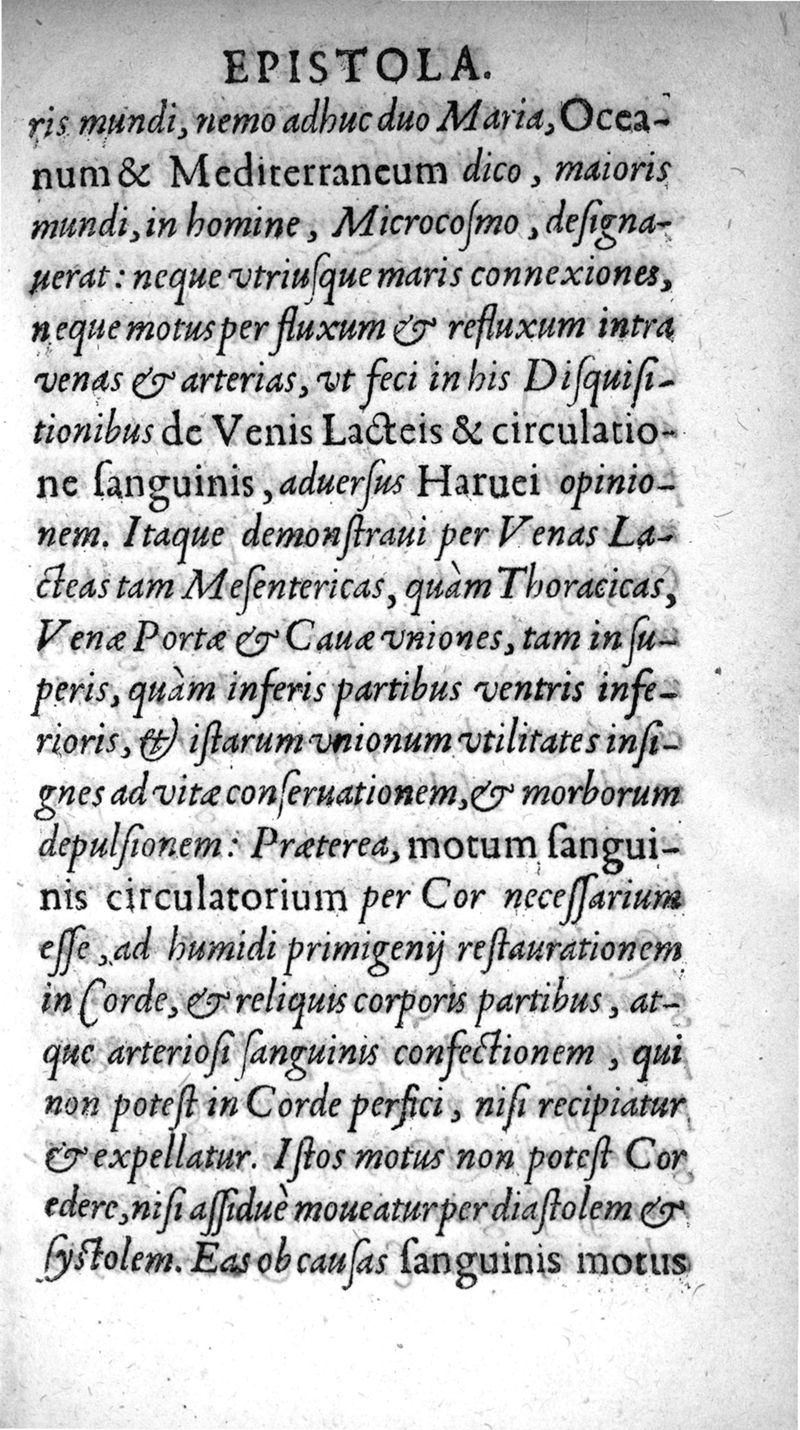 EPISTOLA.
ris mundi, nemo adhuc duo Maria, Ocea-
num & Mediterraneum dico, maioris
mundi, in homine, Microcoſmo, deſigna-
uerat: neque vtriuſque maris connexiones,
neque motus per fluxum & refluxum intra
venas & arterias, vt feci in his Diſquiſi-
tionibus de Venis Lacteis & circulatio-
ne ſanguinis, aduerſus Haruei opinio-
nem. Itaque demonſtraui per Venas La-
cteas tam Meſentericas, quàm Thoracicas,
Venæ Portæ & Cauæ vniones, tam in ſu-
peris, quàm inferis partibus ventris infe-
rioris, & iſtarum vnionum vtilitates inſi-
gnes ad vitæ conſeruationem, & morborum
depulſionem: Præterea, motum ſangui-
nis circulatorium per Cor neceſſarium
eſſe, ad humidi primigenij reſtaurationem
in Corde, & reliquis corporis partibus, at-
que arterioſi ſanguinis confectionem, qui
non poteſt in Corde perfici, niſi recipiatur
& expellatur. Iſtos motus non poteſt Cor
edere, niſi aſſiduè moueatur per diaſtolem &
ſyſtolem. Eas ob cauſas ſanguinis motus